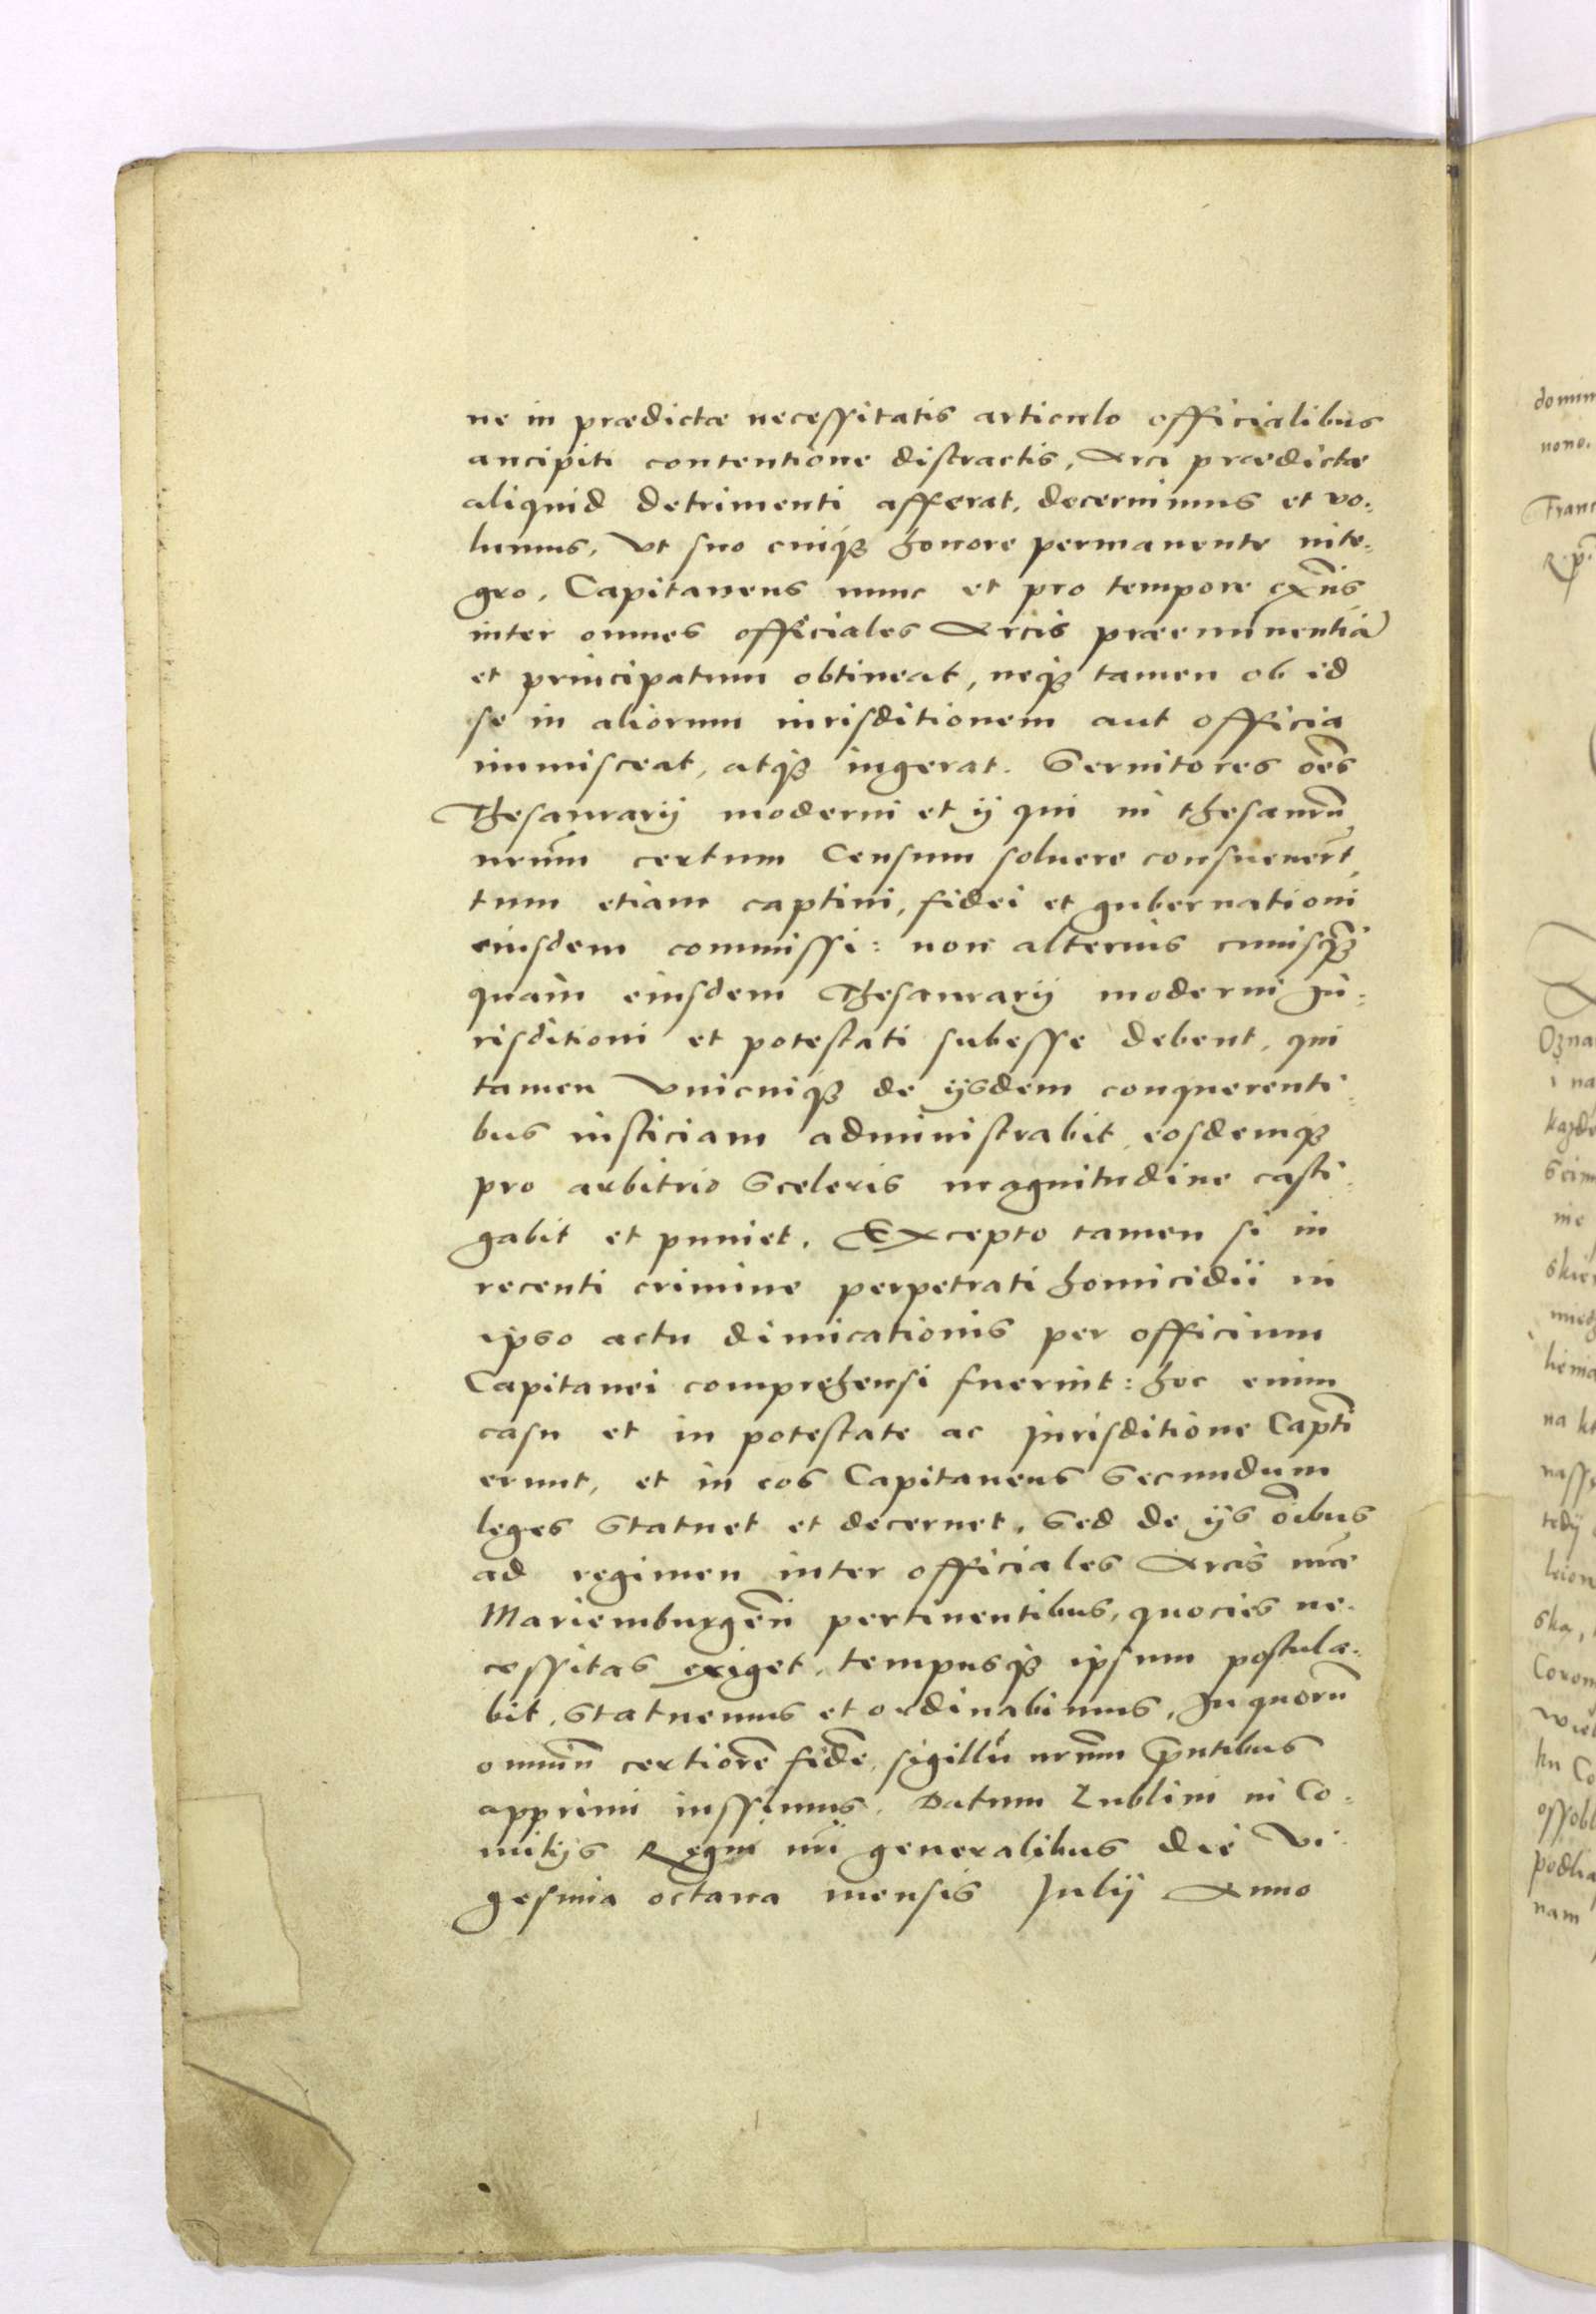 ne in prædictæ necessitatis articulo officialibus
ancipiti contentione distractis, Arci prædictæ
aliquid detrimenti afferat, decernimus et vo:
lumus, Vt suo cuiqȝ honore permanente inte:
gro, Capitaneus nunc et pro tempore exñs
inter omnes officiales Arcis præeminentiã
et principatum obtineat, neqȝ tamen ob id
se in aliorum iurisditionem aut officia
immisceat, atqȝ ingerat. Seruitores oẽs
Thesaurarij moderni et ij qui in thesaurũ
nrũm certum Censum soluere consueuerũt,
tum etiam captiui, fidei et gubernationi
eiusdem commissi: non alterius cuiusqȝ
quàm eiusdem Thesaurarij moderni Ju:
risditioni et potestati subesse debent, qui
tamen Vnicuiqȝ de ijsdem conquerenti:
bus iusticiam administrabit, eosdemqȝ
pro arbitrio Sceleris magnitudine casti:
gabit et puniet. Excepto tamen si in
recenti crimine perpetrati homicidii in
ipso actu dimicationis per officium
Capitanei comprehensi fuerint: hoc enim
casu et in potestate ac Jurisditione Capti
erunt, et in eos Capitaneus Secundum
leges Statuet et decernet, Sed de ijs oĩbus
ad regimen inter officiales Arcis nræ
Mariemburgeñ pertinentibus, quocies ne:
cessitas exiget, tempusqȝ ipsum postula:
bit, Statuemus et ordinabimus, In quorũ
omniũ certiorẽ fidẽ, sigillũ nrũm p̃ntibus
apprimi iussimus. Datum Lublini in Co:
mitijs Regni nr̃i generalibus die Vi:
gesima octaua mensis Julij Anno
domin
none.
Franc
Ozna
i na
każde
nie
na kt
Coron
ossobl
podla
nam